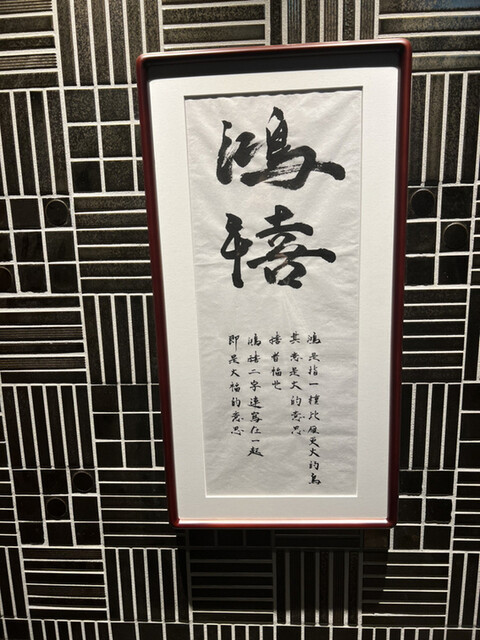 鴻
禧
鴻是指一種比雁更大的鳥
其意是大的意思
禧者福也
鴻禧二字連寫在一起
即是大福的意思